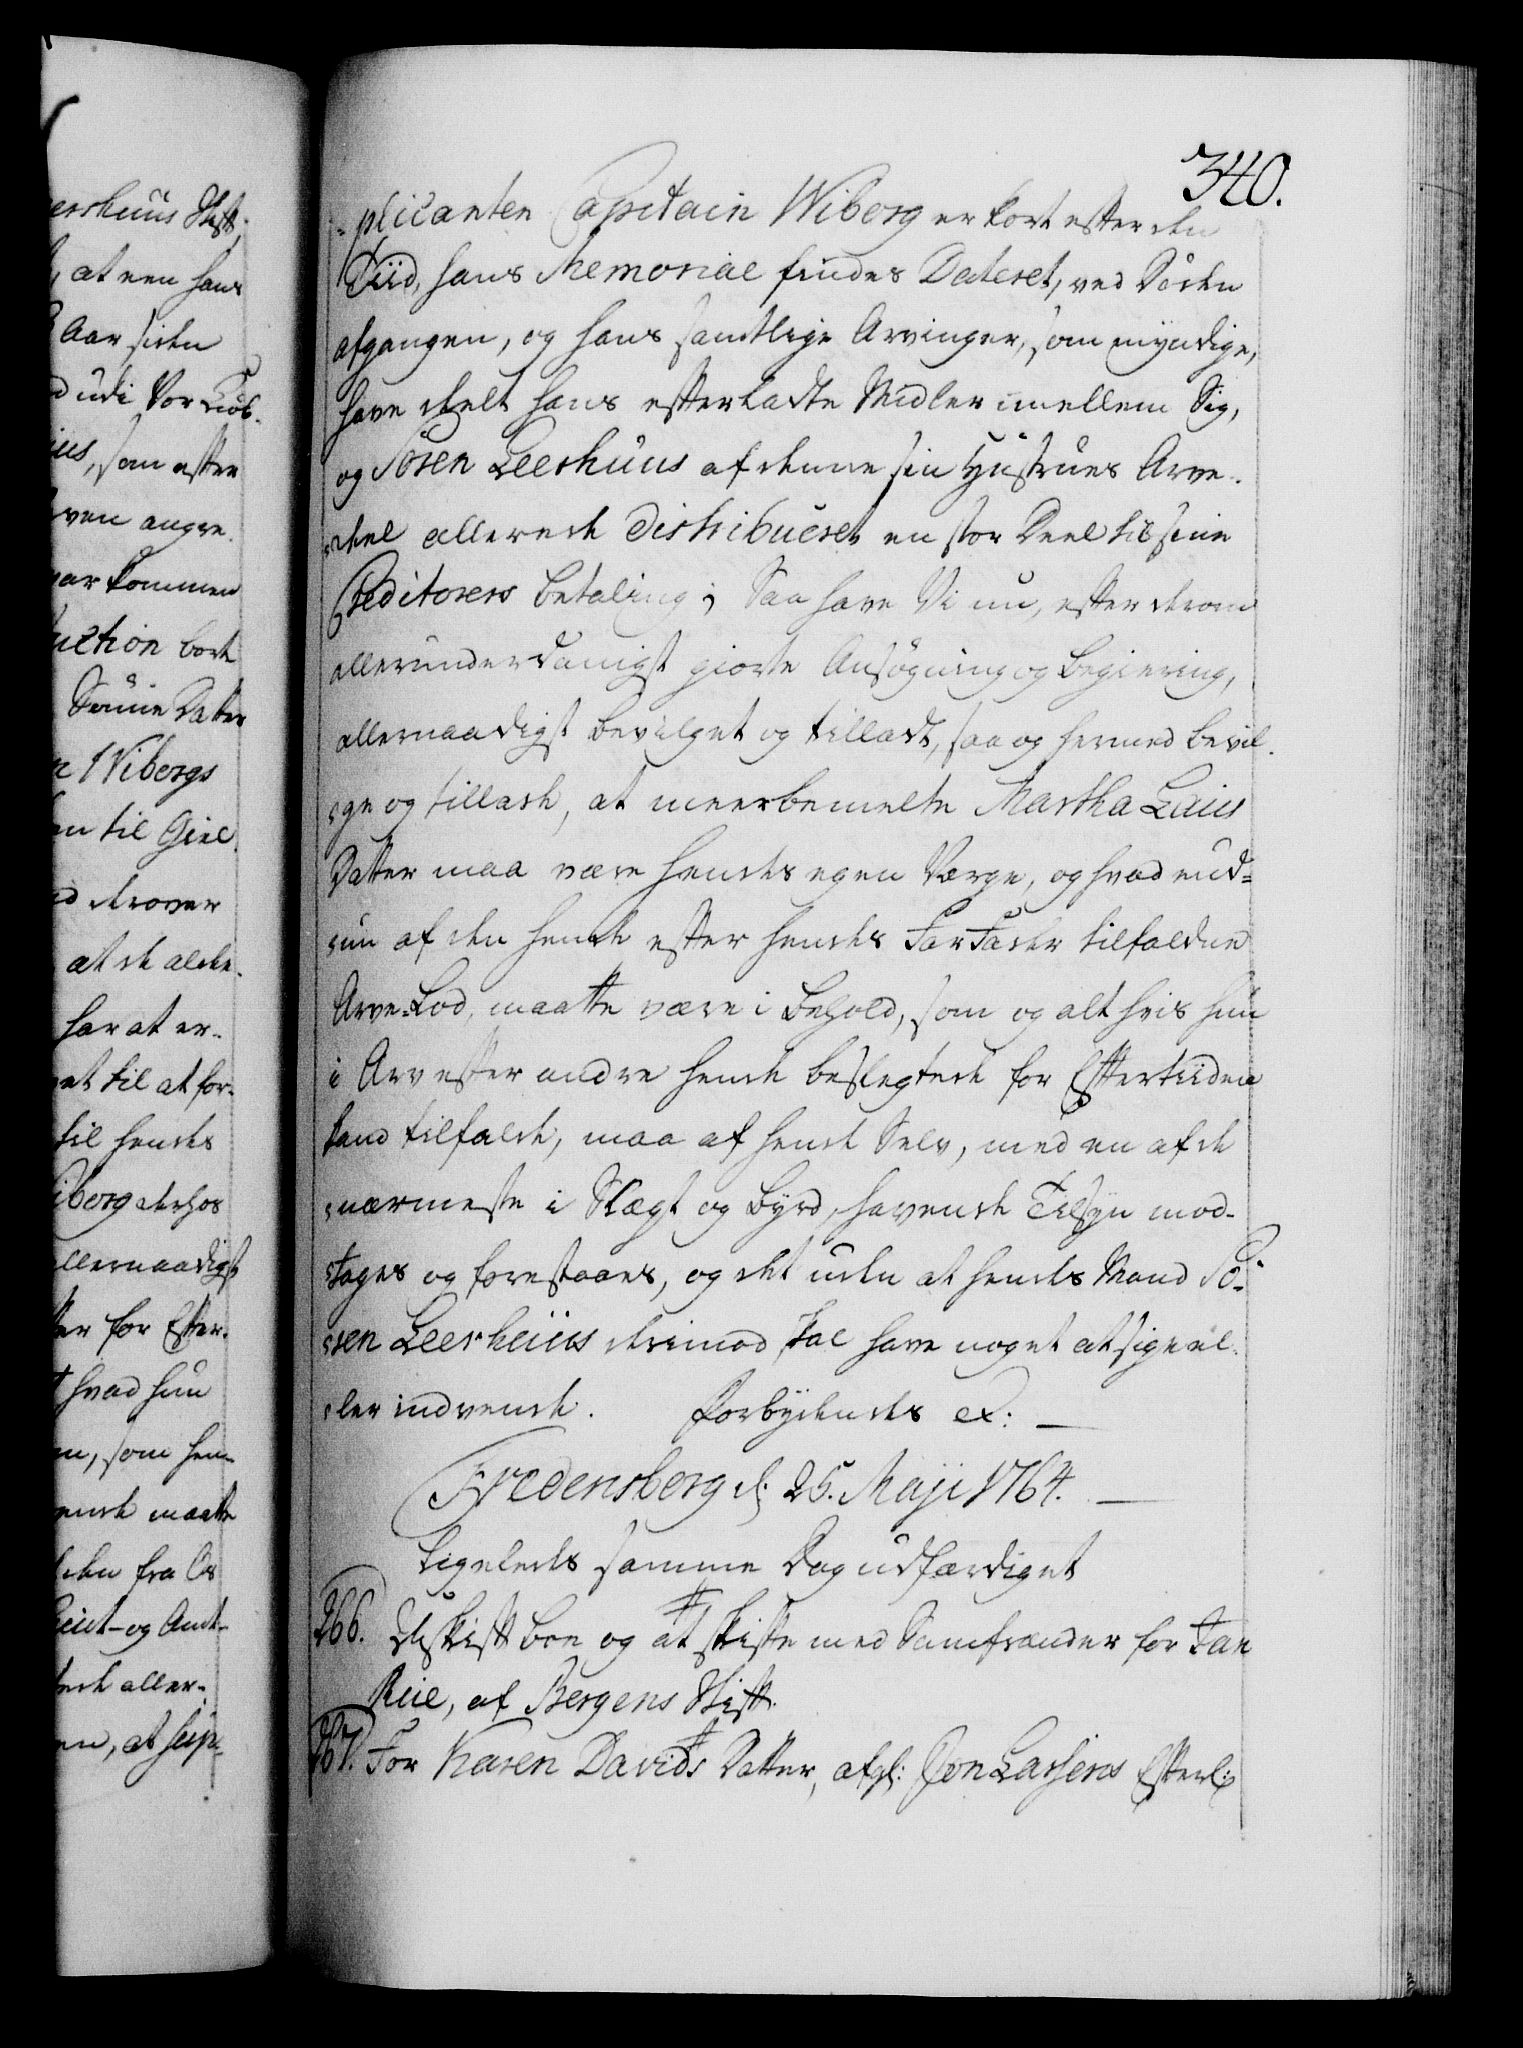 340.
ershuus Stift.
at een hans
Aar siden
d udi Vor Kiöb-
ius, som efter
ven angre
var kommen
uction bort
Sönne Datter
n Wibergs
en til Giel
ed derover
at de alde-
har at er-
et til at for-
til hendes
iberg derhos
llernaadigst
ter for Efter-
t hvad hun
en, som hen-
ende maatte
den fra Os
og Amt-
aller-
en, at sup-
-plicanten Capitain Wiberg er kort efter den
Tiid, hans Memorial findes Dateret, ved Döden
afgangen, og hans samtlige Arvinger, som myndige,
have deelt hans efterladte Midler imellem Sig,
og Sören Leerhuus af denne sin Hustrues Arve-
-deel allerede distribueret en stor Deel til sine
Creditorers betaling; Saa have Vi nu, efter derom
allerunderdanigst giorte Ansögning og begiering,
allernaadigst bevilget og tilladt, saa og hermed bevil-
-ge og tillade, at meerbemelte Martha Laus
Datter maa være hendes egen Værge, og hvad end-
-nu af den hende efter hendes FarFader tilfaldne
Arve-Lod, maatte være i behold, som og alt hvis hun
i Arv efter andre hende beslegtede for Eftertiiden
kand tilfalde, maa af hende Selv, med en af de
-nærmeste i Slægt og byrd, havende Tilsyn mod-
-tages og forestaaes, og det uden at hendes Mand Sö-
-ren Leerhuus derimod skal have noget at sige el-
-ler indvende. Forbydendes etc: —
Fredensberg d: 25. Maji 1764. —
Ligeledes samme Dag udfærdiget
266. Uskift boe og at skifte med Samfrænder for Jan
Rue, af Bergens Stift.
267. For Karen Davids Datter, afgl: Jon Larsens Efterl: